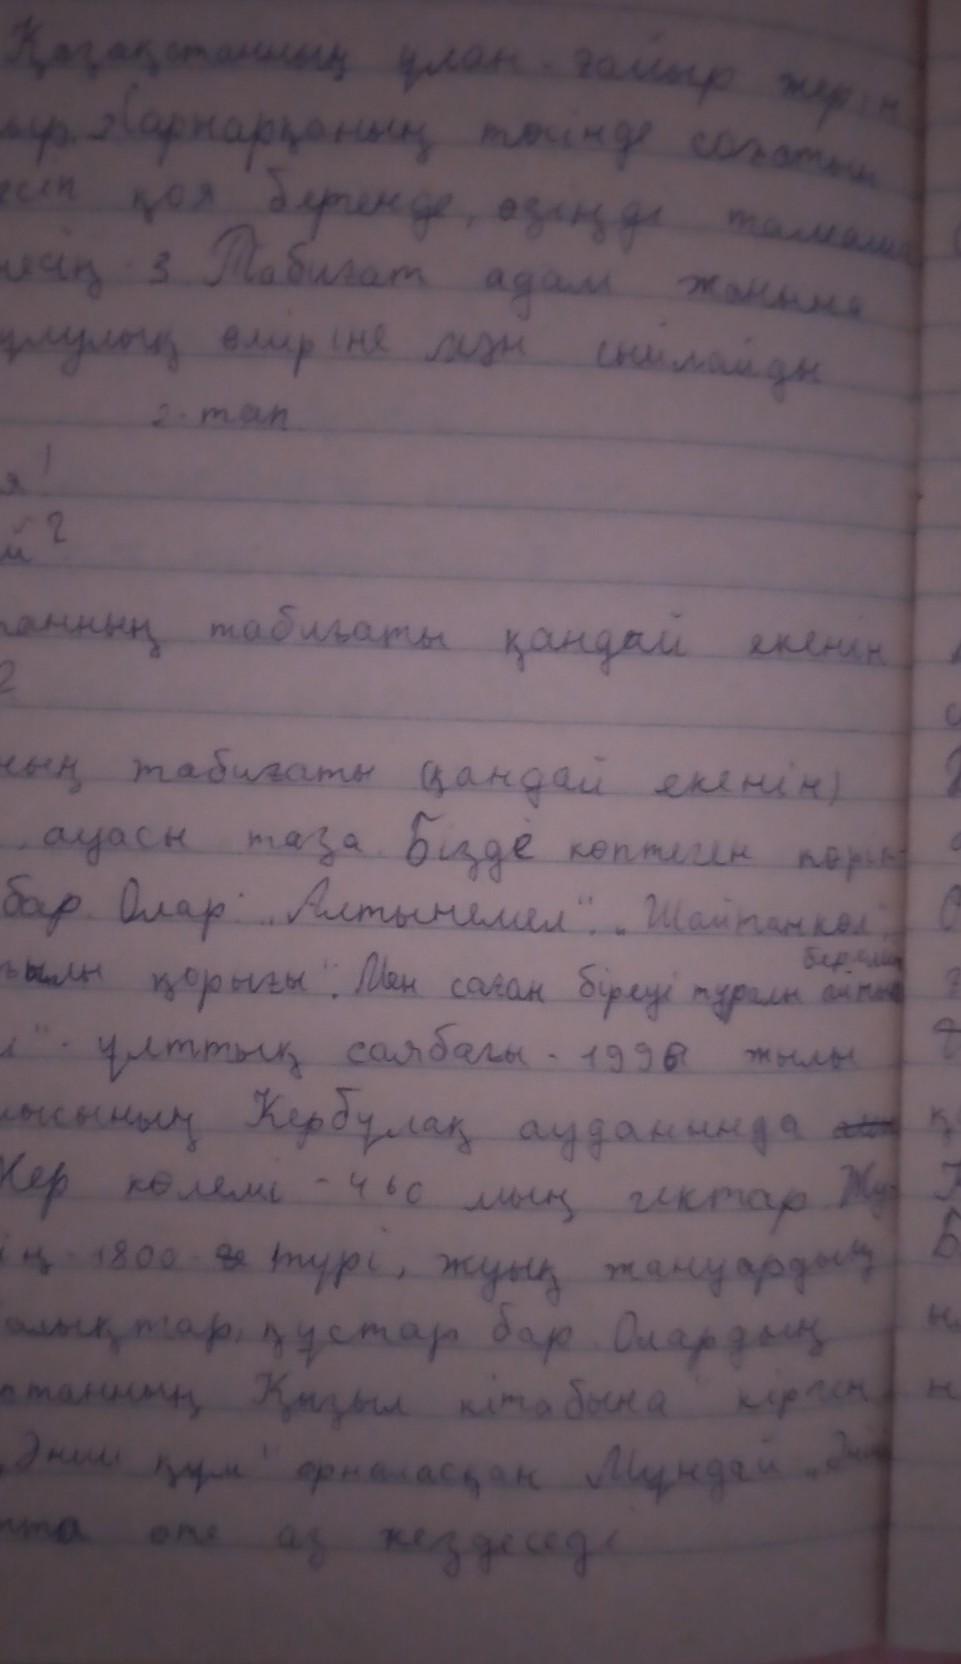 Қазақстанның ұлан-ғайыр жерін
төсінде
қоя бергенде, өзіңді тамаша
3 Табиғат адам жанына
сұлулық өміріне мән сыйлайды
2-тап
я!
й?
танның табиғаты қандай екенін
?
ның табиғаты (қандай екенін)
, ауасы таза Бізде көптеген қоры-
бар. Олар: "Алтынемел", "Шайтанкөл",
қорығы". Мен саған біреуі туралы айтып берейін
л" - ұлттық саябағы - 1996 жылы
лысының Кербұлақ ауданында
Жер көлемі - 460 мың гектар
ің 1800 түрі, жуық жануардың
балықтар, құстар бар Олардың
станның Қызыл кітабына кірген
"Әнші құм" орналасқан Мұндай "Әнші
өте аз кездеседі